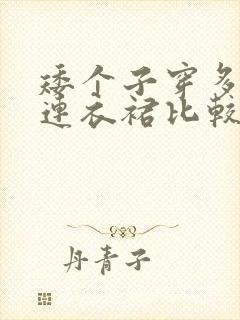 矮个子穿多
连衣裙比较
丹青子